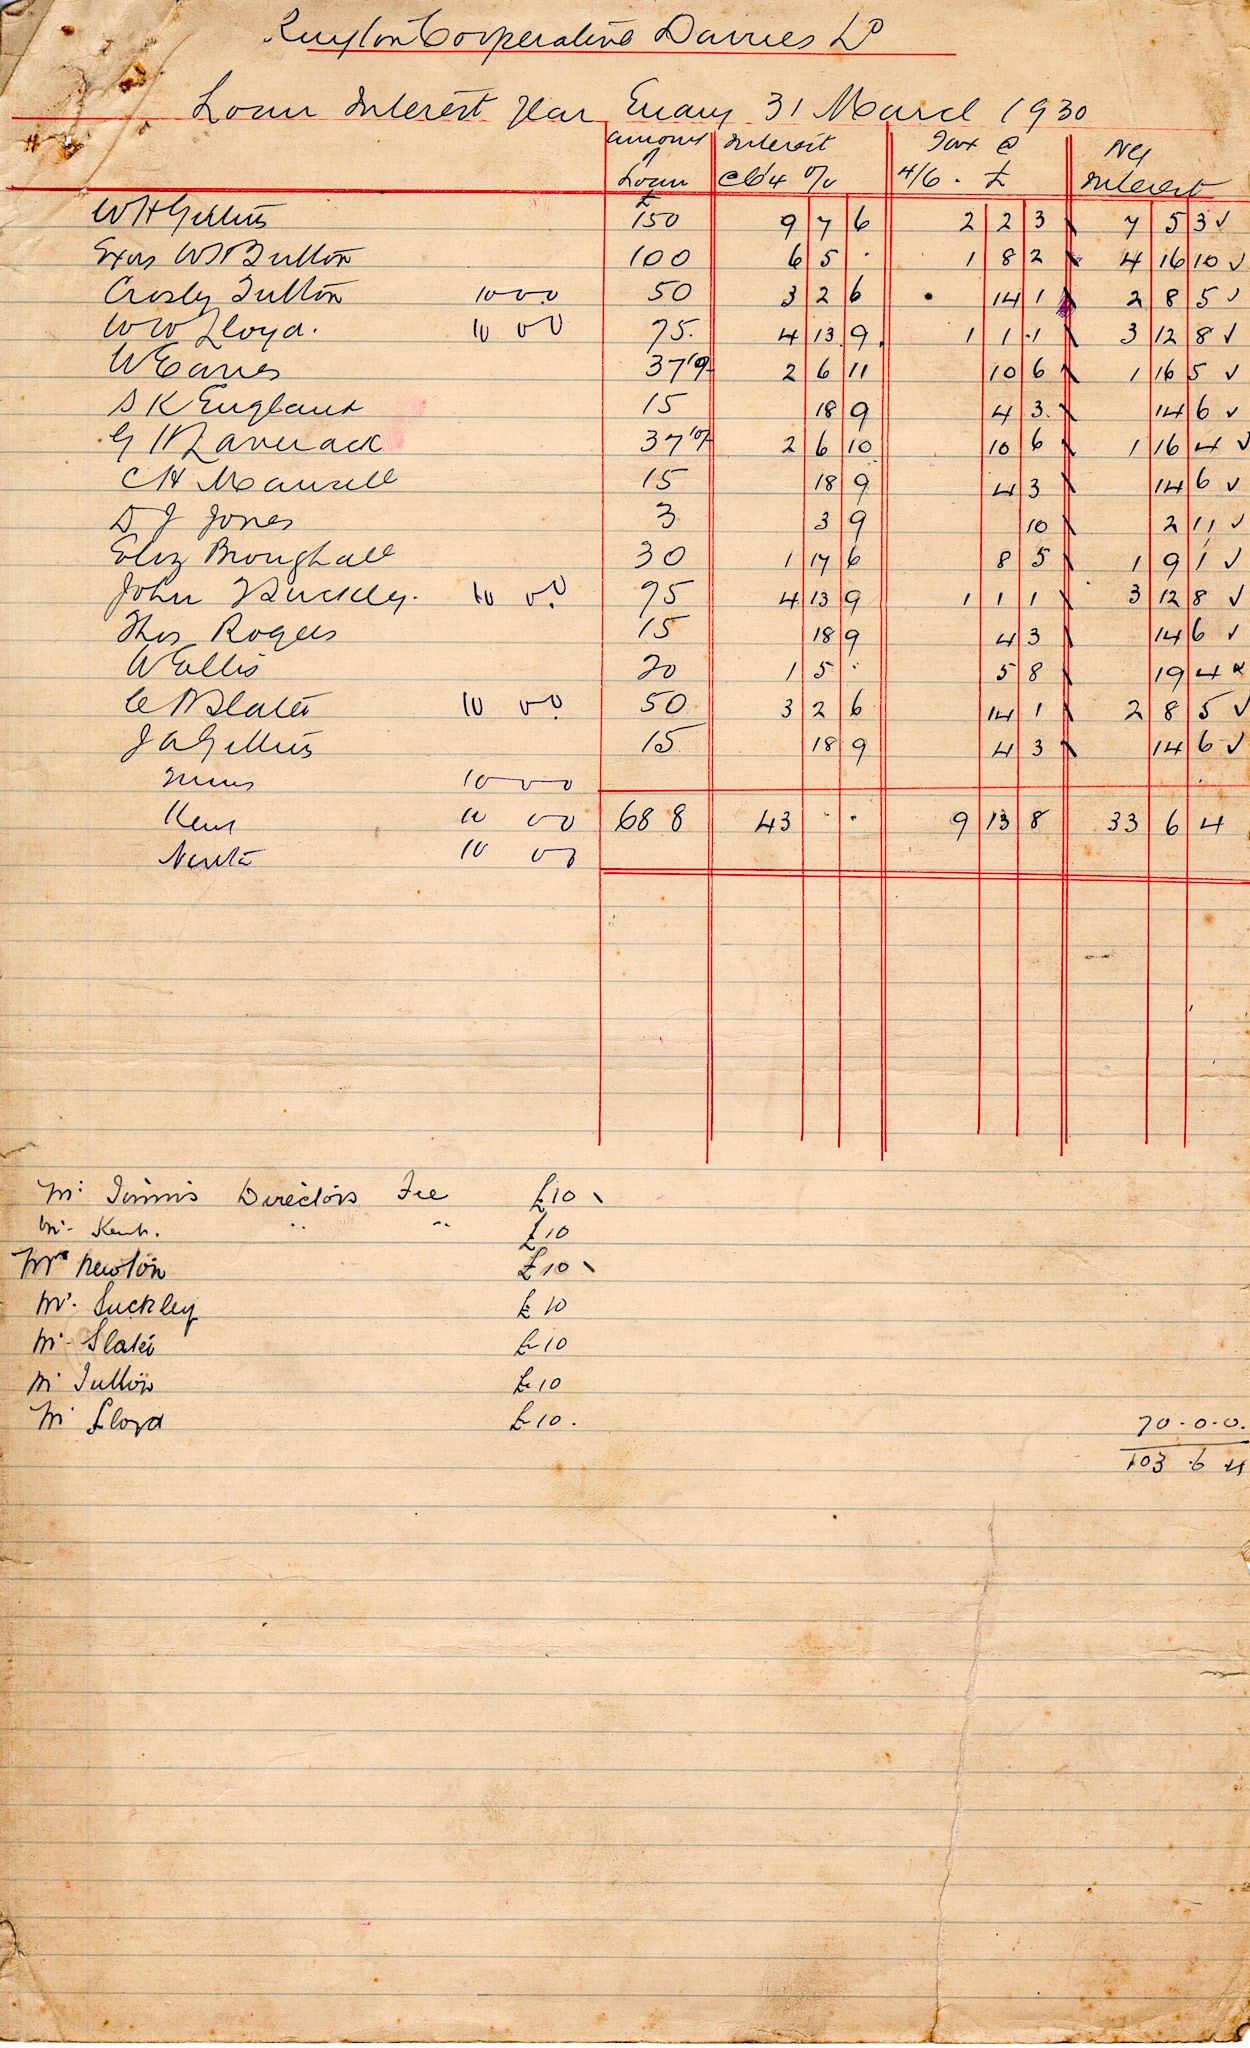 Ruyton Cooperative Dairies Ld
Loan Interest Year Ending 31 March 1930
Amount of Loan Interest @ 6¼ % Tax @ 4/6 . £ Net Interest
£
W H Gittins 150 9 7 6 2 2 3 7 5 3 ✓
Exors W Sutton 100 6 5 . 1 8 2 4 16 10 ✓
Crosby Sutton 10 0 0 50 3 2 6 . 14 1 2 8 5 ✓
W W Lloyd. 10 0 0 75. 4 13 9 1 1 1 3 12 8 ✓
W Eaves 37 10/- 2 6 11 10 6 1 16 5 ✓
S K England 15 18 9 4 3 14 6 ✓
G H Laverack 37 10/- 2 6 10 10 6 1 16 4 ✓
C H Mansell 15 18 9 4 3 14 6 ✓
D J Jones 3 3 9 10 2 11 ✓
Eliz Broughall 30 1 17 6 8 5 1 9 1 ✓
John Suckley. 10 0 0 75 4 13 9 1 1 1 3 12 8 ✓
Thos Rogers 15 18 9 4 3 14 6 ✓
W Ellis 20 1 5 . 5 8 19 4
C Slater 10 0 0 50 3 2 6 14 1 2 8 5 ✓
J A Gittins 15 18 9 4 3 14 6 ✓
Timms 10 0 0
Kent 10 0 0 688 43 . . 9 13 8 33 6 4
Newton 10 0 0
Mr Timmis Directors Fee £10
Mr. Kent. " " £10
Mrs Newton £10
Mr. Suckley £10
Mr Slater £10
Mr Sutton £10
Mr Lloyd £10.
70.0.0.
103.6 4